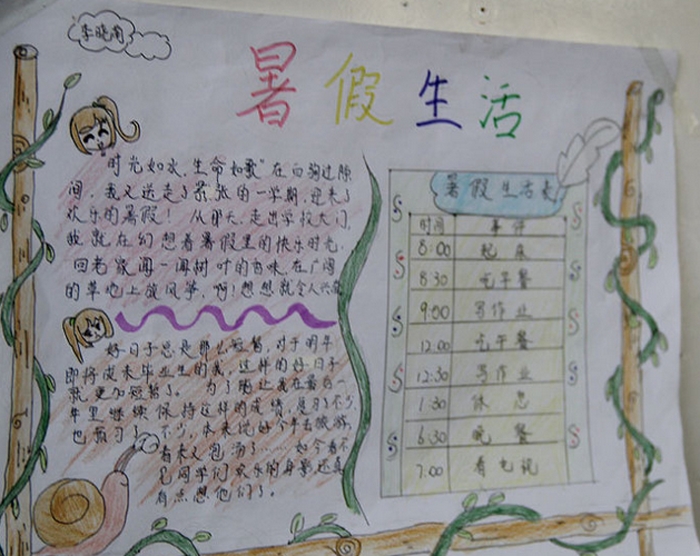 李晓南
暑假生活
时光如水,生命如歌"在白驹过隙
间,我又送走了紧张的一学期,迎来了
欢乐的暑假! 从那天,走出学校大门,
我就在幻想着暑假里的快乐时光.
回老家闻一闻树叶的香味,在广阔
的草地上放风筝,啊!想想就令人兴奋
好日子总是那么短暂,对于明年
即将成为毕业生的我,这样的好日子
就更加短暂了。 为了能让我在最后一
年里继续保持这样的成绩,复习了不少,
也预习了不少,本来说好今年去旅游,
看来又包汤了……如今看不
见同学们欢乐的身影还真
有点想他们了。
暑假生活表
时间 事件
8:00 起床
8:30 吃早餐
9:00 写作业
12:00 吃午餐
12:30 写作业
1:30 休息
6:30 晚餐
7:00 看电视